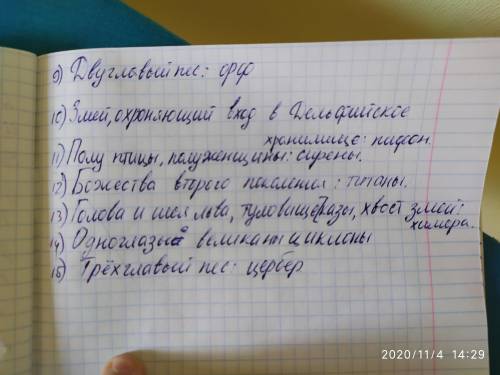 9) Двуглавый пес: орф
10) Змей, охроняющий вход в Дельфийское
хронилище: пифон.
11) Полу птицы, полуженщины: сирены.
12) Божества второго поколения: титаны.
13) Голова и шея льва, туловище козы, хвост змеи:
химера.
14) Одноглазый великан циклопы
15) Трёхглавый пес: цербер
2020/11/4 14:29